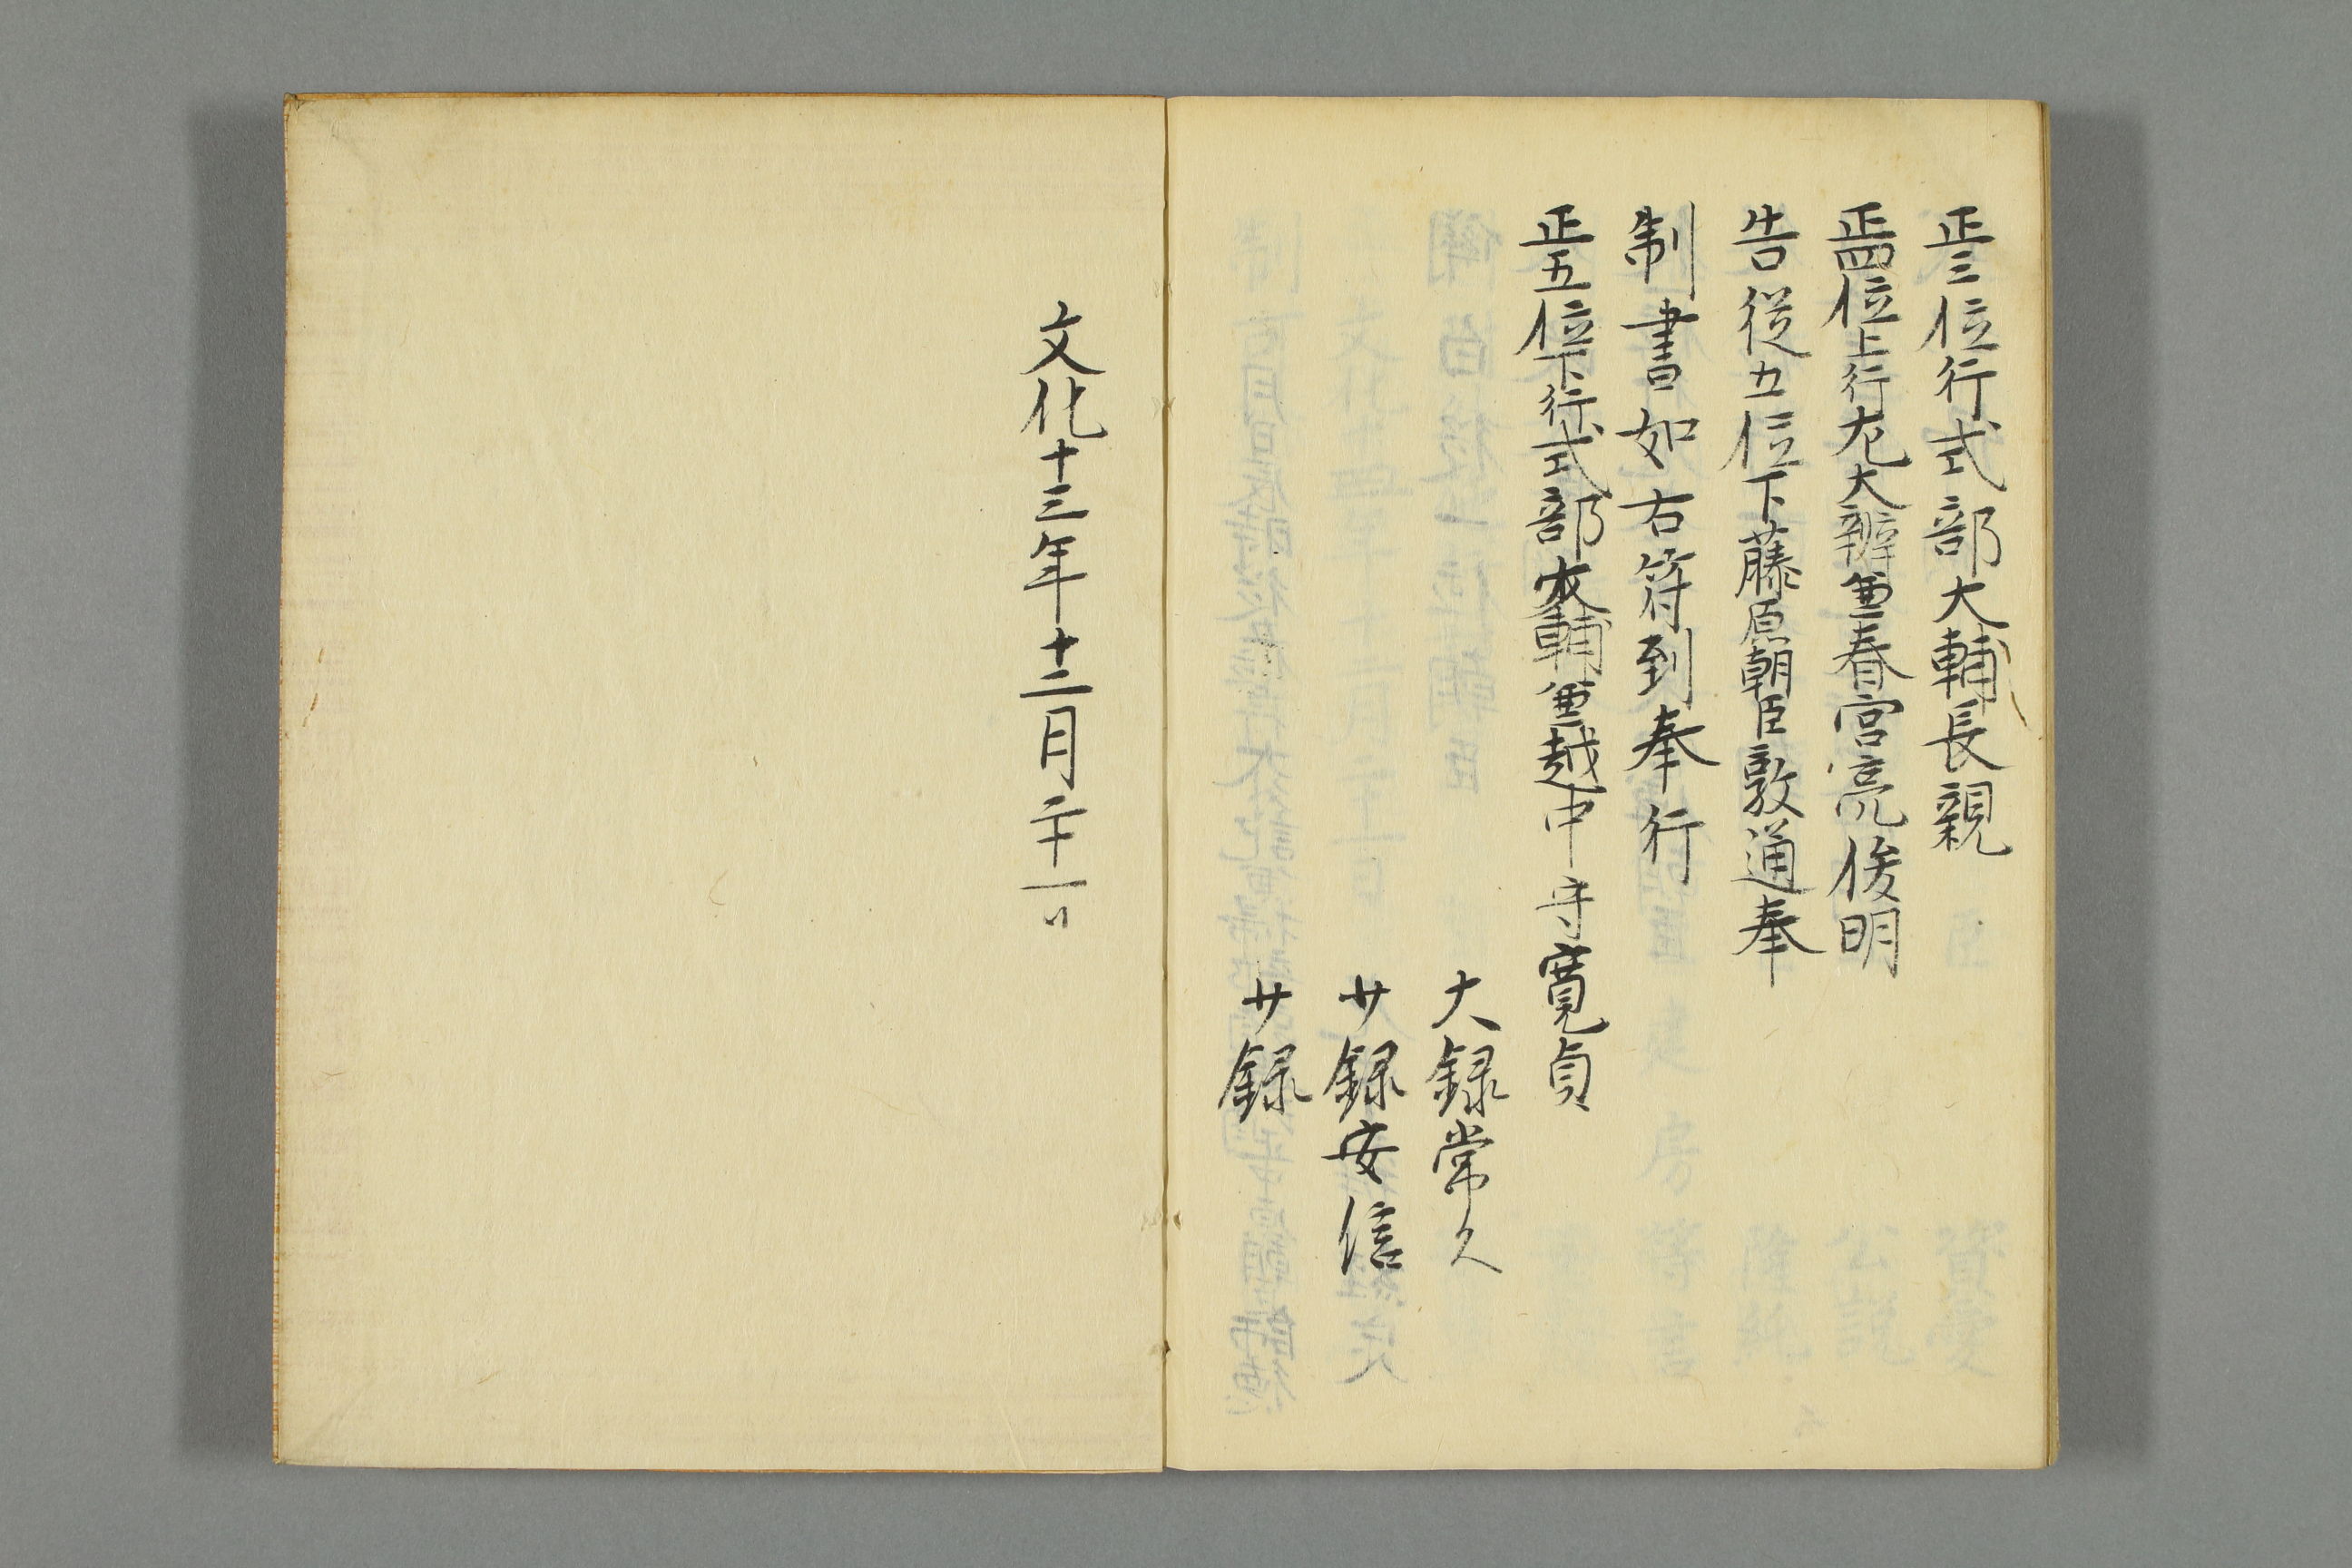 正三位行式部大輔長親
正四位上行左大辨兼春宮亮俊明
告従五位下藤原朝臣敦通奉
制書如右符到奉行
正五位下行式部大輔兼越中守寛貞
大録常久
少録安信
少録
文化十三年十二月二十一日